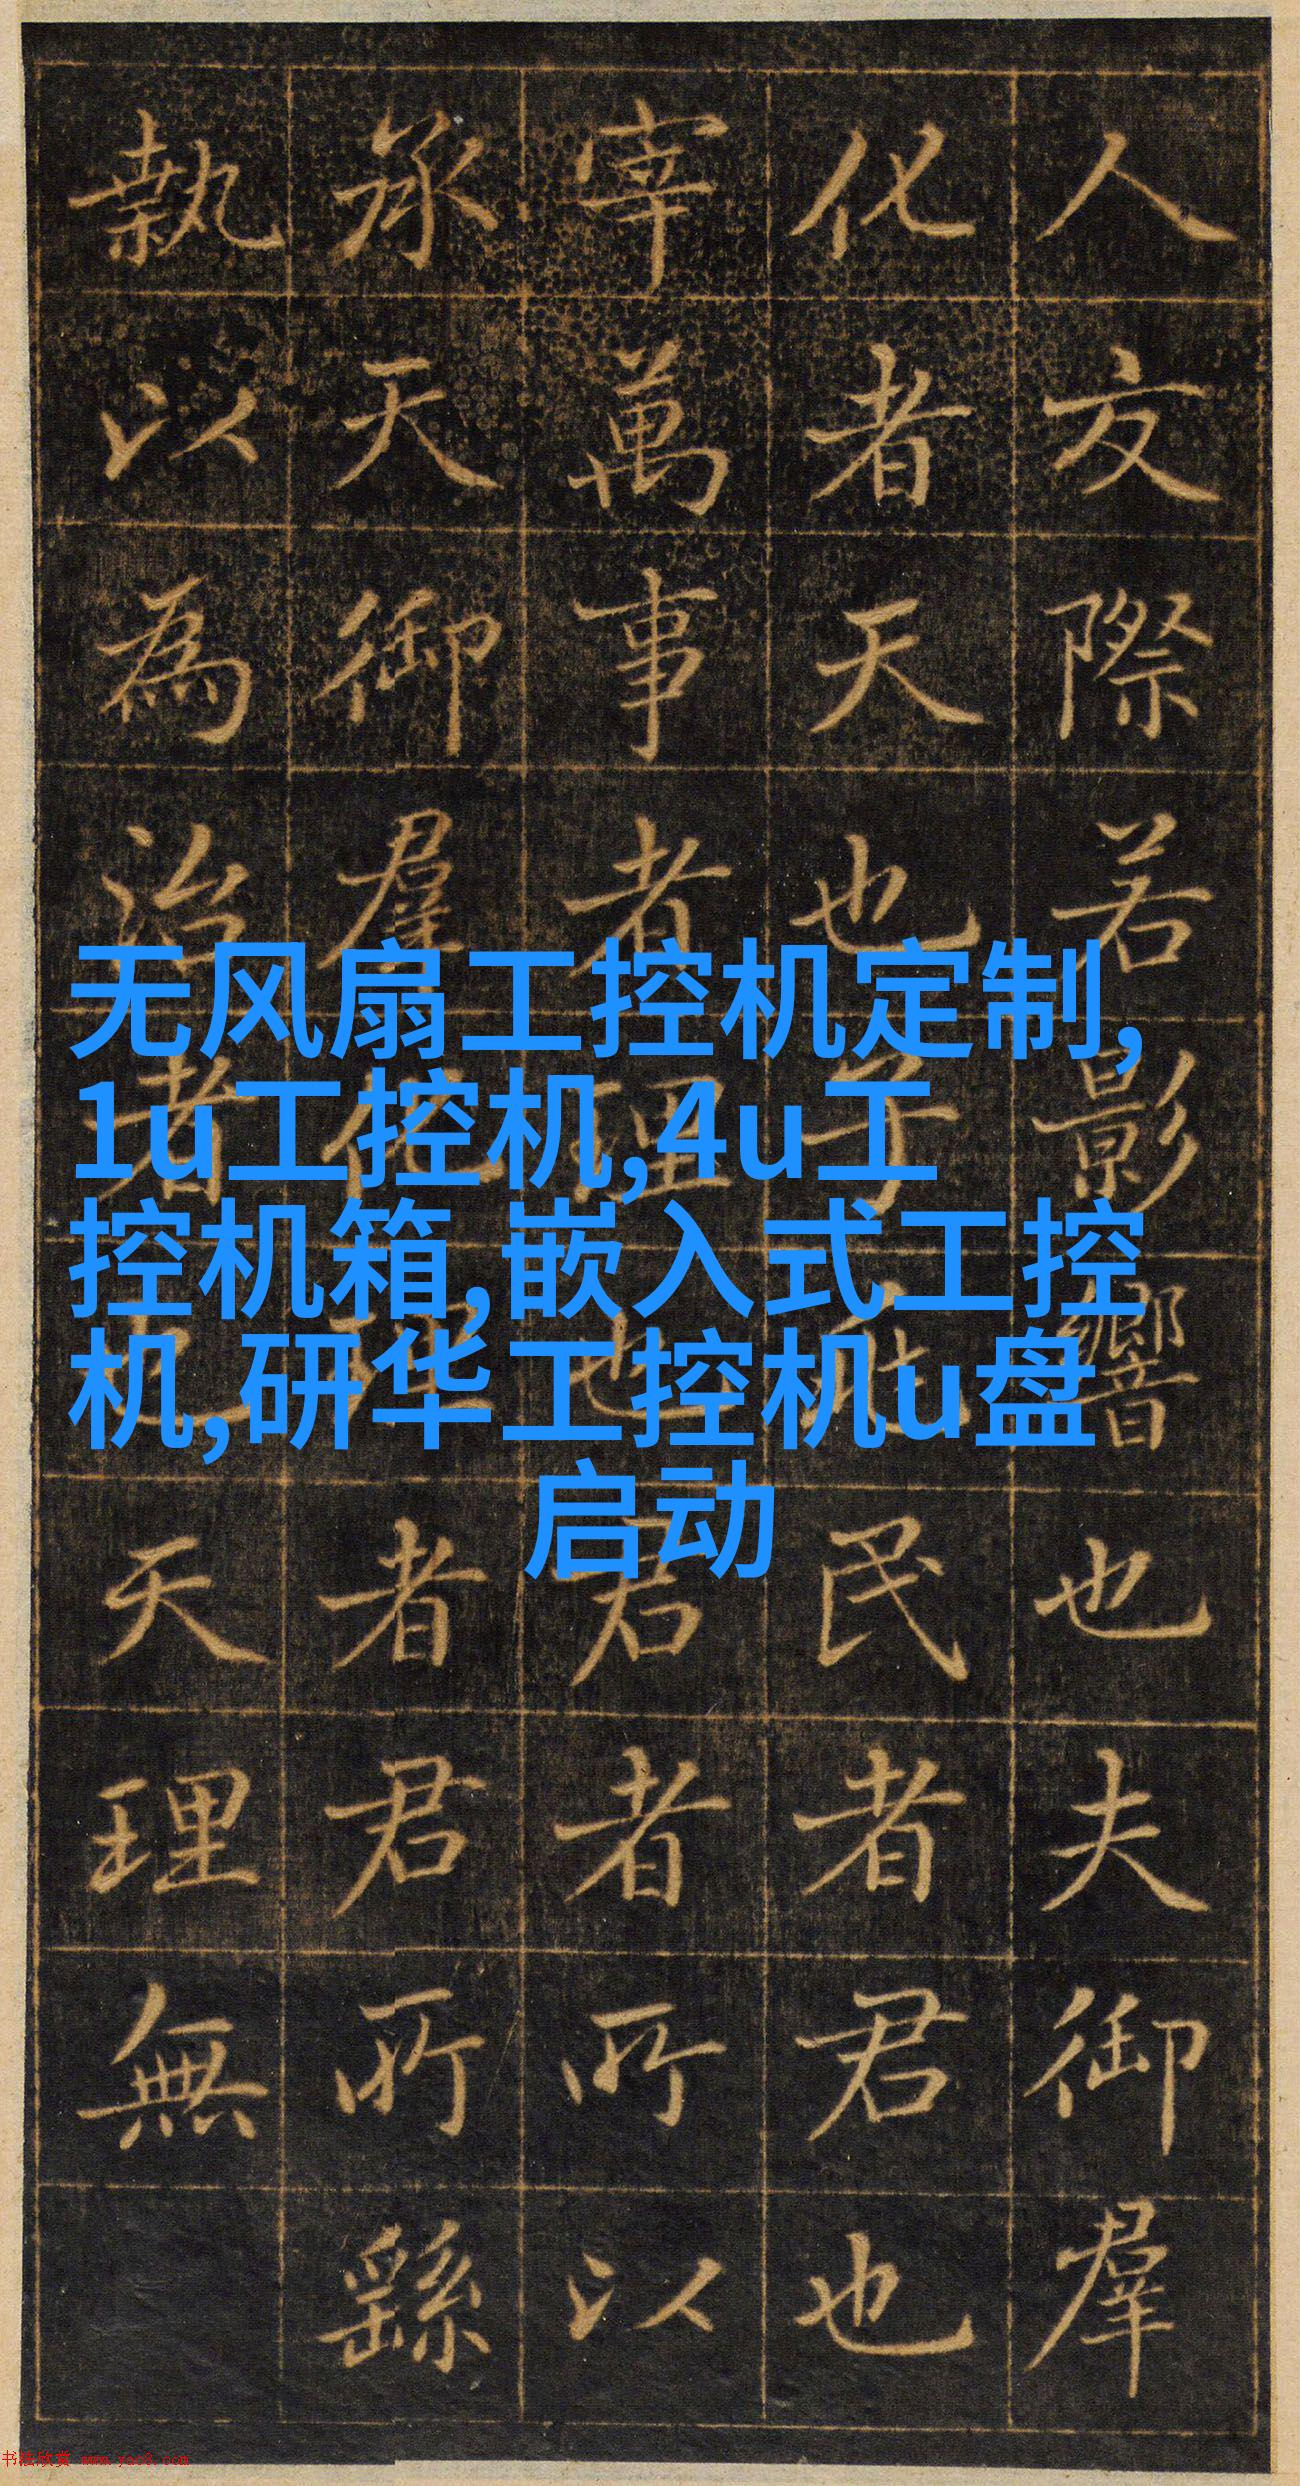 人交際若影響也夫御羣
化者天也子民者君也
宰萬事者理也君者所以
承天御羣化理者君所繇
執以為治者也天理無
无风扇工控机定制,
1u工控机,4u工
控机箱,嵌入式工控
机,研华工控机u盘
启动
书法欣赏 www.yac8.com